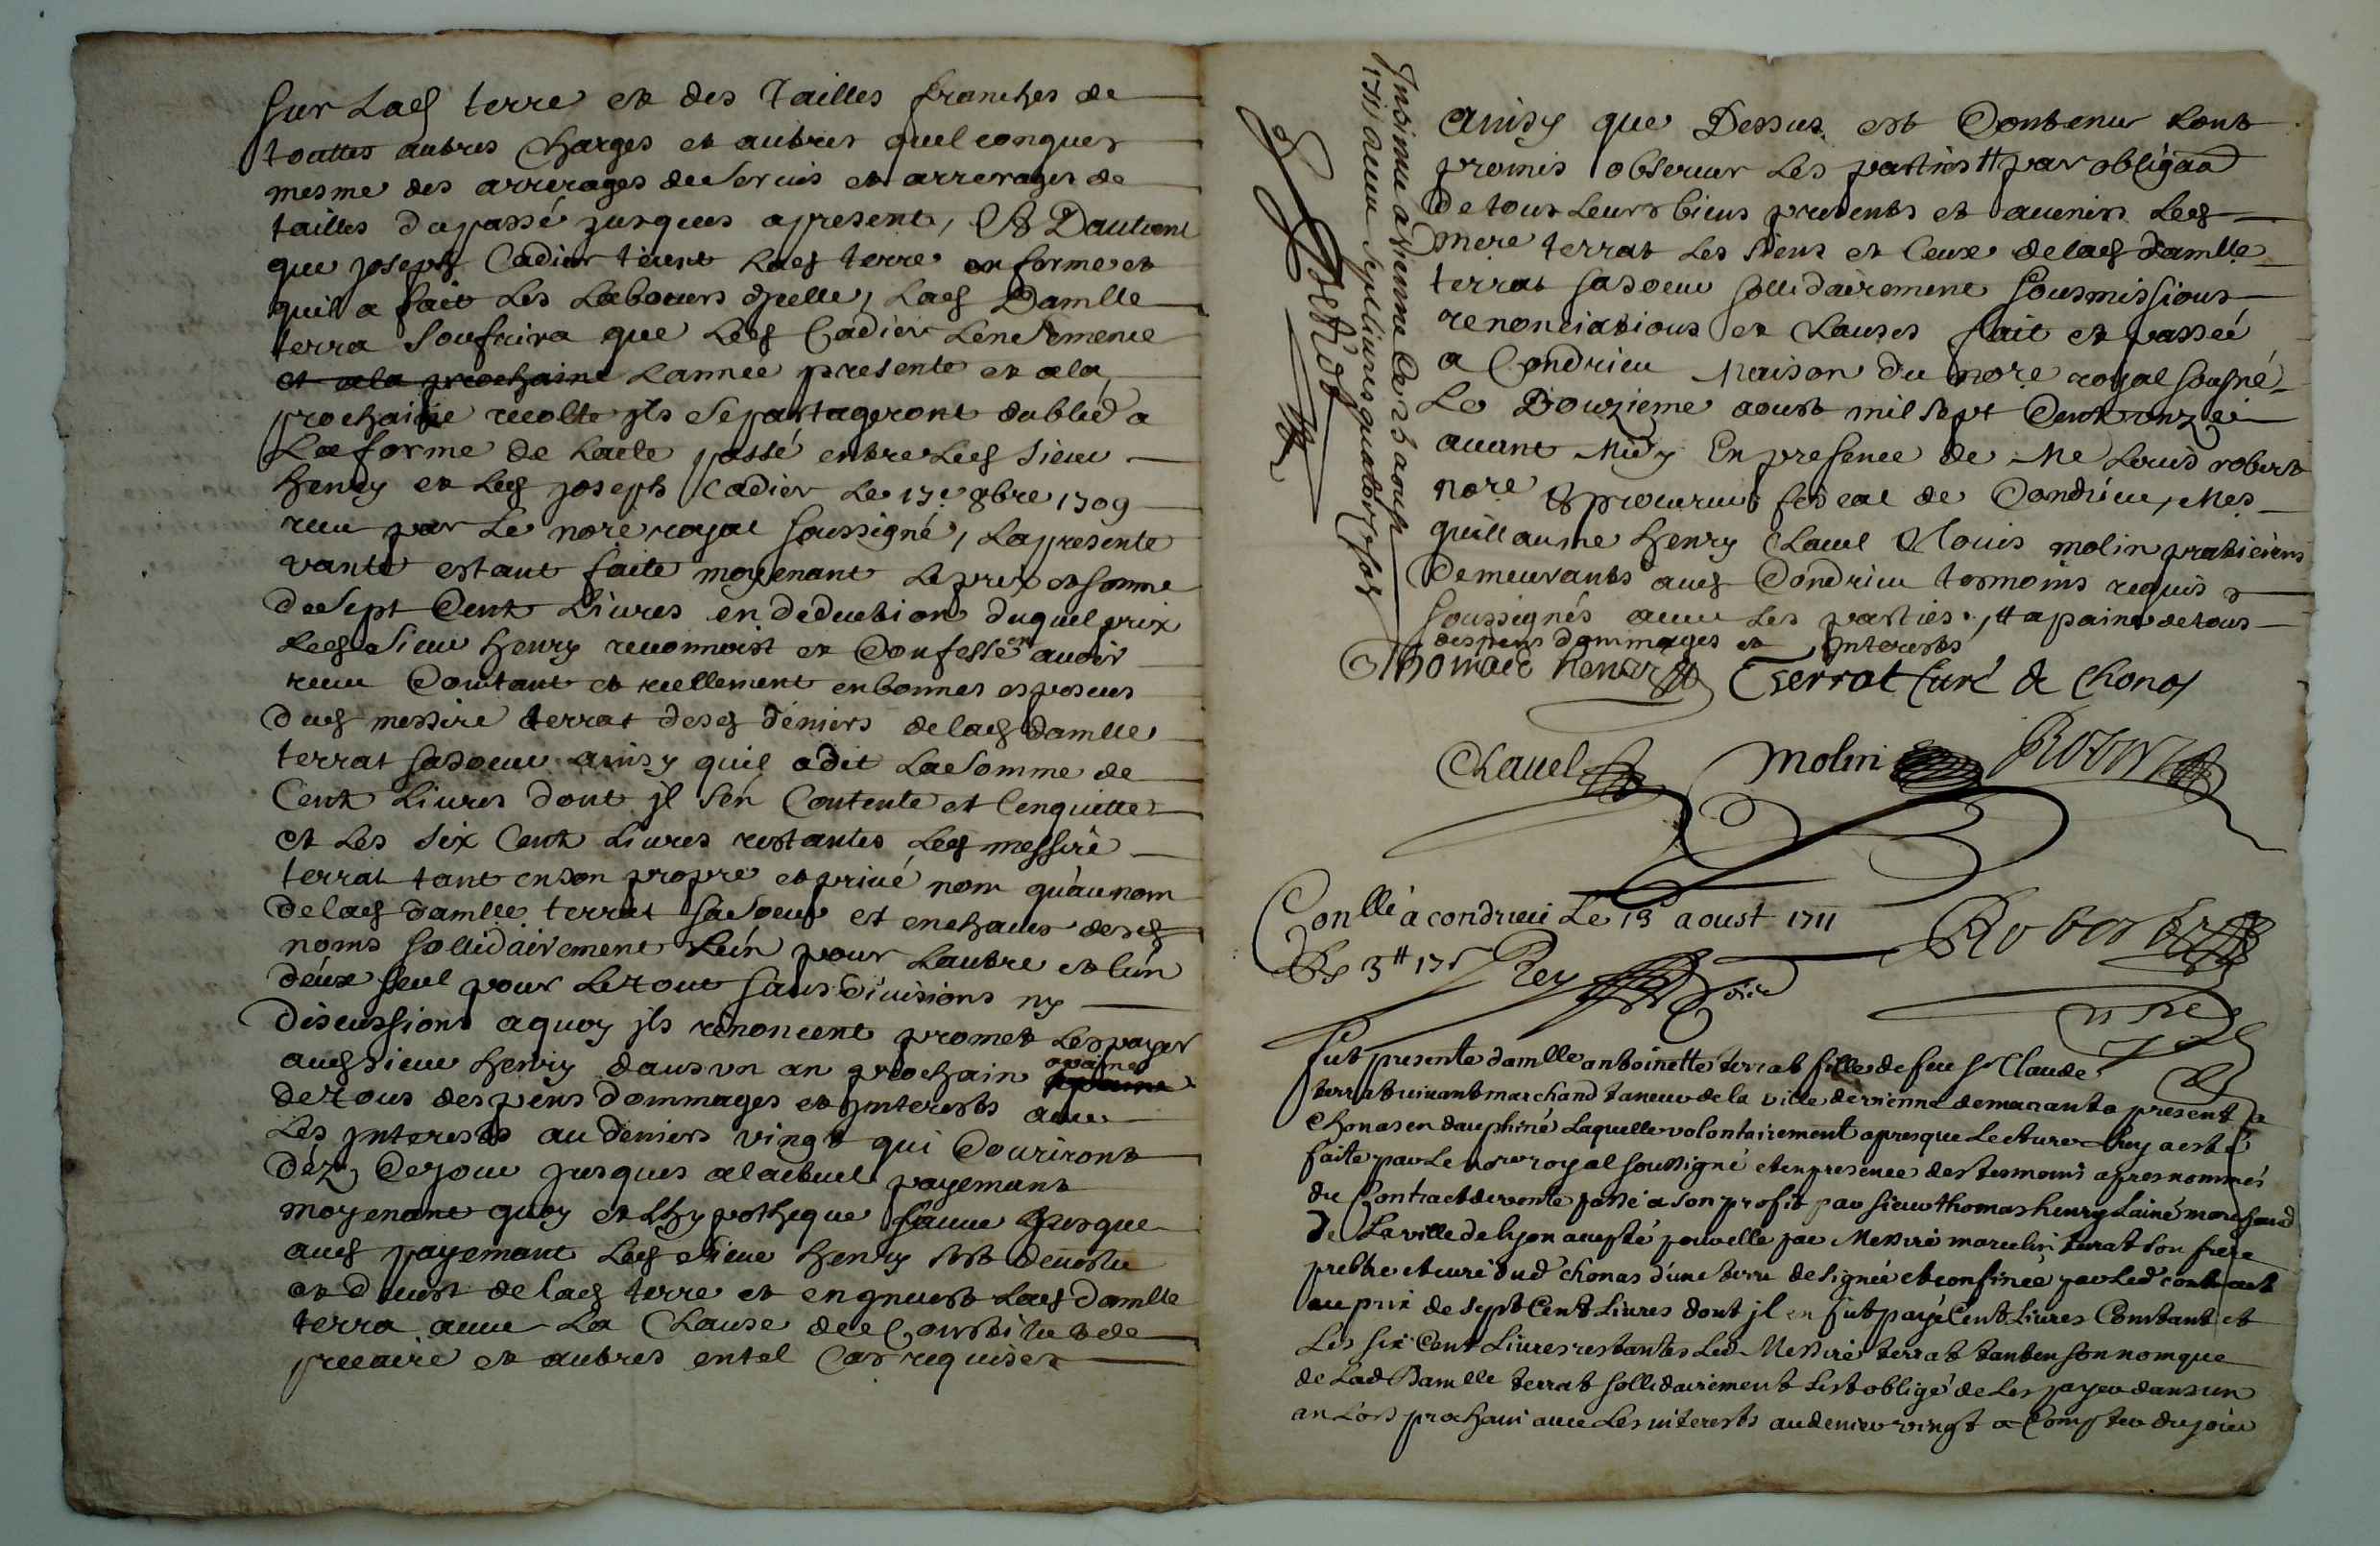 sur lad terre et des tailles franches de
touttes autres charges et autres quelconques
mesme des arrerages de servis et arrerages de
tailles du passé jusques apresent, Et Dautent
que joseph Cadier tient lad terre en forme et
quil a fait les labours dicelle, lad Damlle
terra soufrira que led Cadier lensemence
et ala prochaine lannee presente et ala
prochaine recolte jls se partageront dubled a
la forme de lacte passé entre led sieur
henry et led joseph Cadier le 17e 8bre 1709
receu par le nore royal soussigné, la presente
vante estant faite moyenant le prix et somme
de sept Cent livres en deduction duquel prix
led sieur henry reconnoist et Confesse en avoir
receu Contant et reellement en bonnes especes
dud messire terrat desd deniers de lad damlle
terrat sa soeur ainsy quil a dit la somme de
Cent livres dont jl sen Contente et lenquitte
et les six Cent livres restantes led messire
terrat tant en son propre et privé nom quau nom
de lad damlle terrat sa soeur et en chacun desd
noms sollidairement lun pour lautre et lun
deux seul pour le tout sans divisions ny
discussions a quoy jls renoncent promet les payer
aud sieur henry dans vn an prochain apaine
de tous despens dommages et jnterests avec
les jnterests au deniers vingt qui Couriront
déz Ce jour jusques alactuel payement
moyenant quoy et lhypotheque sauve jusque
aud payement led sieur henry sest devestu
et devest de lad terre et en jnvest lad damlle
terra avec la Clause de Constitut de
precaire et autres en tel Cas requises
Insinué a Vienne Ce 23 aoust
1711 receu sept livres quatorze sols
Ainsy que Dessus est Contenu lont
promis observer les parties # par obligaon
de tous leurs biens presents et avenirs led
mre terrat les siens et Ceux de lad damlle
terrat sa soeur sollidairement sousmissions
renonciations et clauses fait et passé
a Condrieu maison du nore royal sousné
Le Douzieme aoust mil sept Cent onze
avant Midy En presence de Me Louis robert
nore & procureur fiscal de Condrieu, Mes
guillaume henry Chavel & louis molin praticiens
Demeurants aud Condrieu tesmoins requis &
soussignés avec les parties, # apaine de tous
despens dommages et Interests
Thomas henry Terrat Curé de Chonas
Chavel Molin Robert
Conllé a condrieu Le 13 aoust 1711
Rs 3# 17s Rey Robert
nre
Fut presente damlle antoinette terrat fille de feu sr Claude
terrat vivant marchand taneur de la ville de vienne demeurant a present a
Chonas en dauphiné laquelle volontairement apres que lecture luy a esté
faite par le nore royal soussigné et en presence des tesmoins apres nommés
du Contract de vente passé a son profit par sieur thomas henry lainé marchand
de La ville de lyon accepté pour elle par Messire marcelin terrat son frere
prebtre et curé dud chonas dune terre designée et confinée par led contract
au prix de sept Cent livres dont jl en fut payé Cent livres Contant et
les six Cent livres restantes led Messire terrat tant en son nom que
de lad Damlle terrat sollidairement sest obligé de les payer dans un
an lors prochain avec les interests au denier vingt a Compter du jour